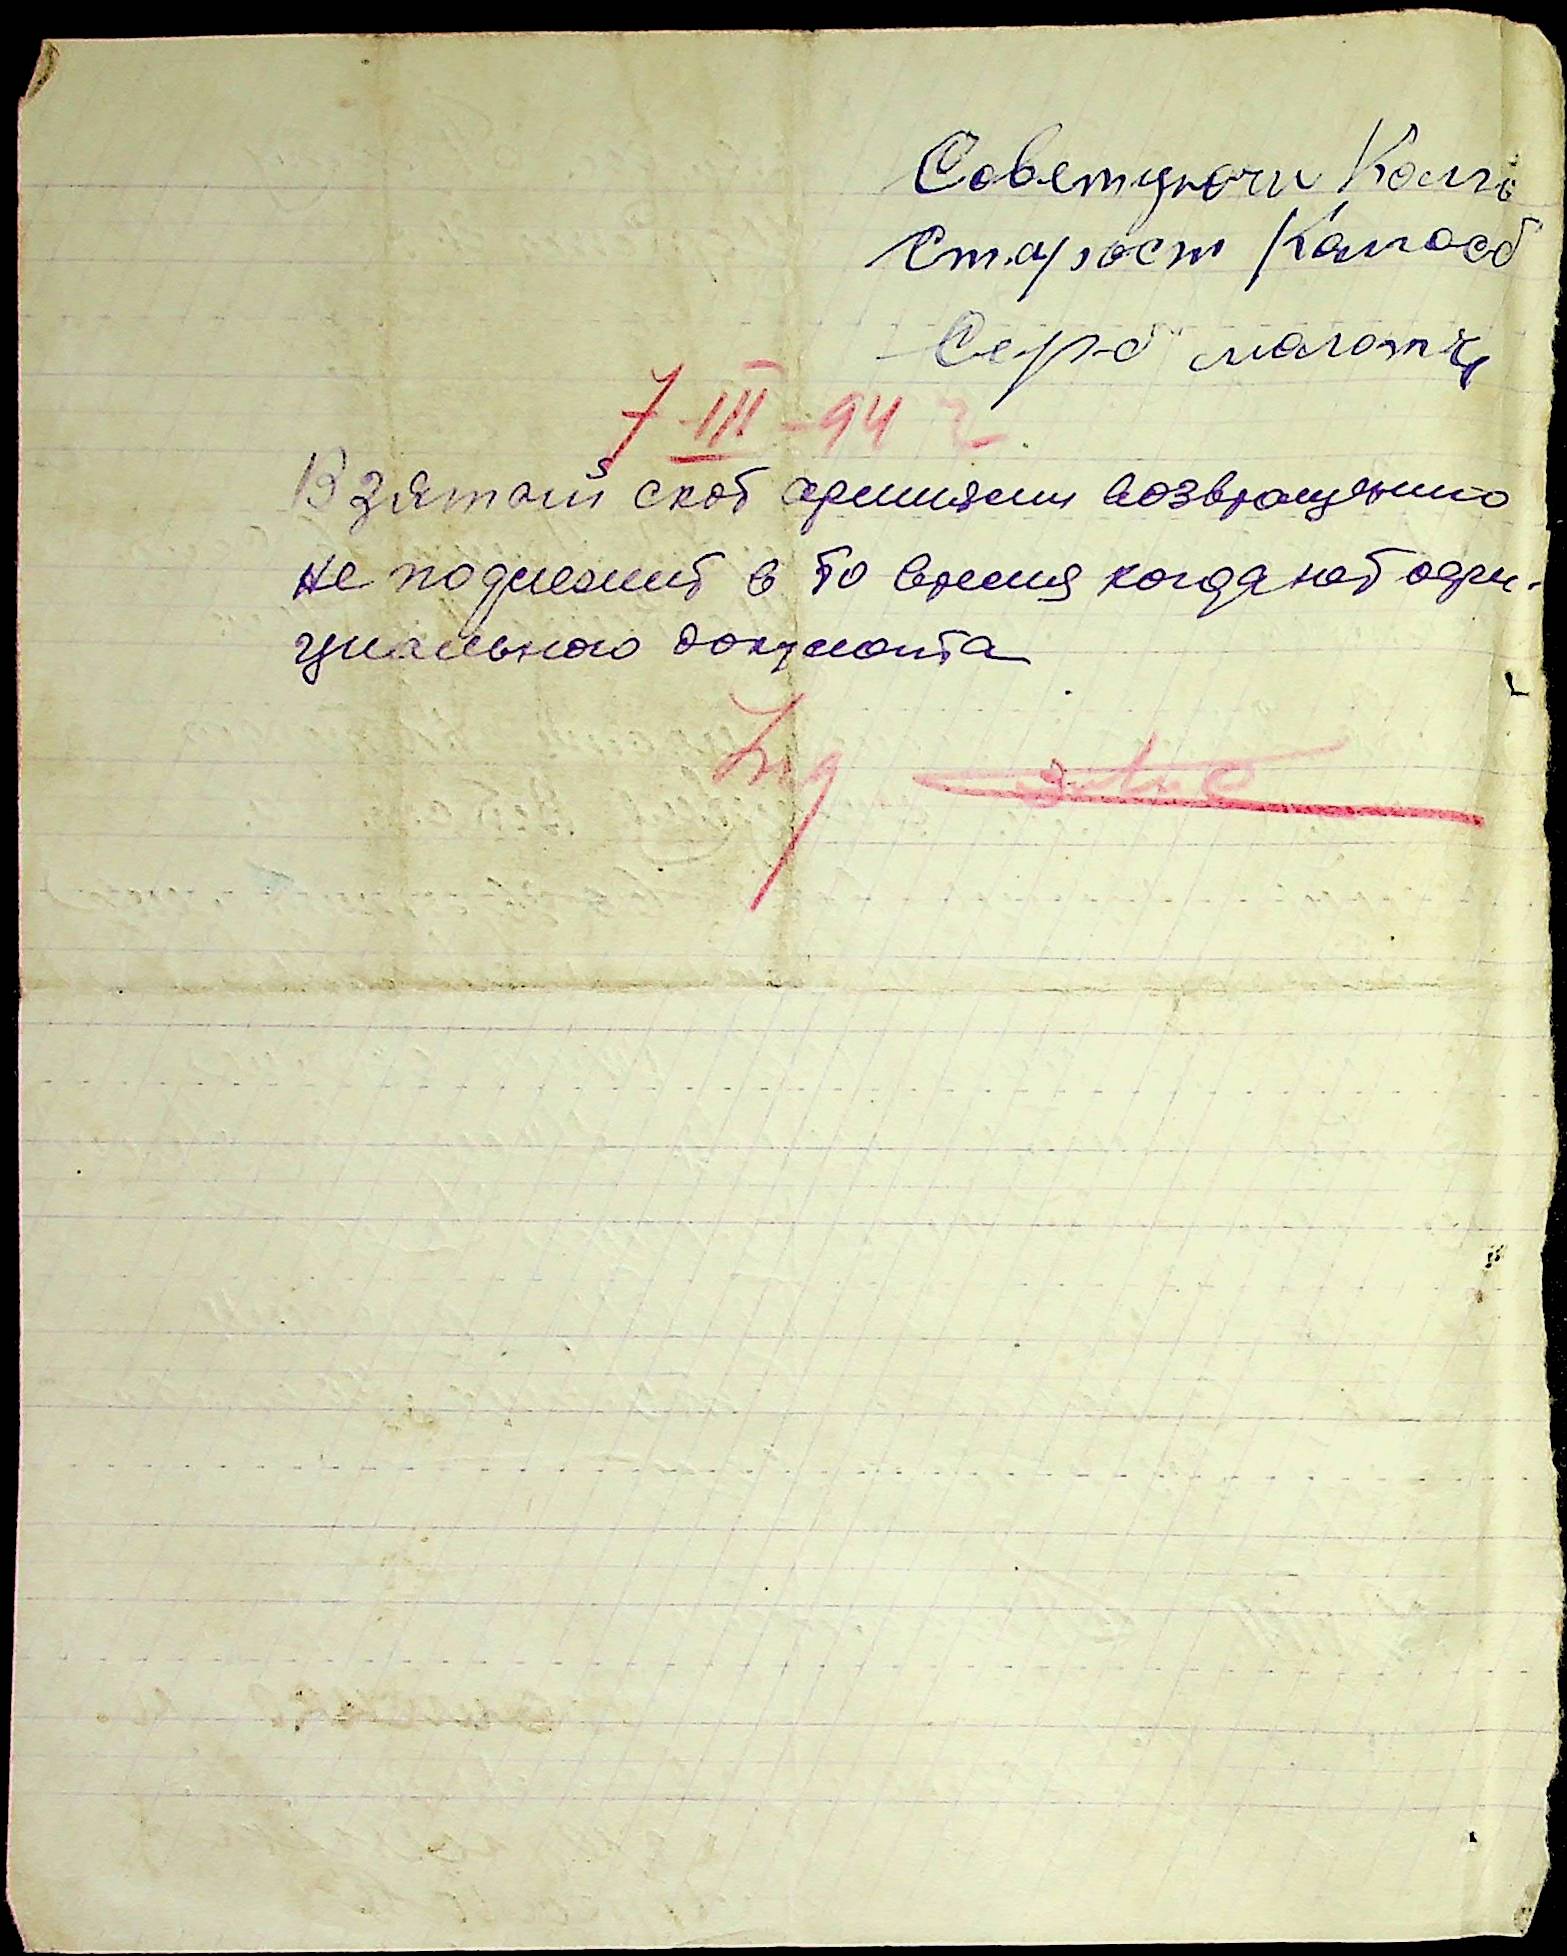 Советуночи Колгс
Старост Калгосб
Серб малотч
7-III-94 г.
Взятой скот армиями возвращению
не подлежит в то время когда нет офи-
циального документа